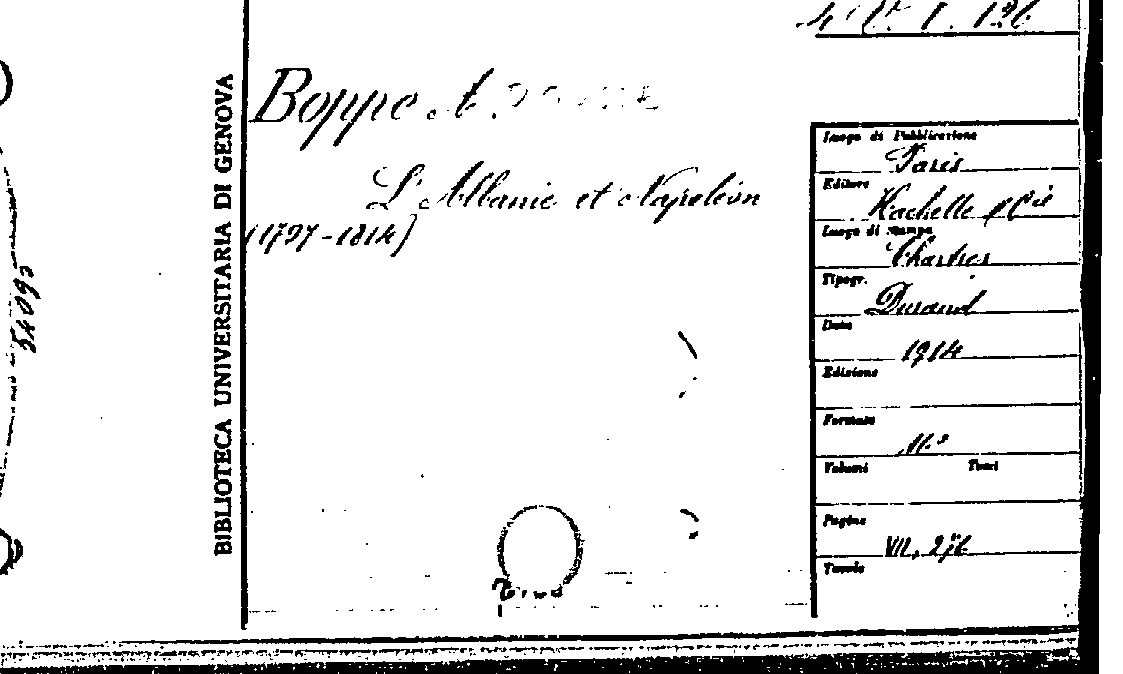 BIBLIOTECA UNIVERSITARIA DI GENOVA
Boppe A.
L'Albanie et Napoléon
(1797-1814)
Luogo di Pubblicazione
Paris
Editore
Hachette & Cie
Luogo di stampa
Chartres
Tipogr.
Durand
Data
1914
Edizione
Formato
Volumi Tomi
Pagine
VII, 276
Tavole